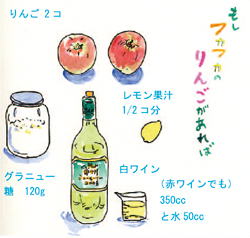 もし
フカフカの
りんごがあれば
りんご 2コ
レモン果汁
1/2コ分
グラニュー
糖 120g
白ワイン
(赤ワインでも)
350cc
と水50cc